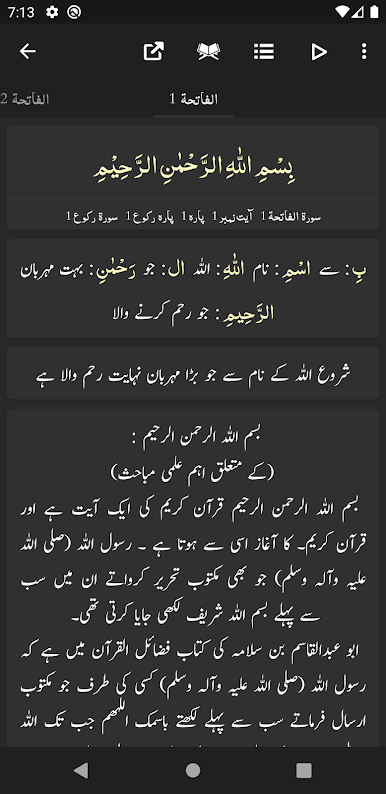 7:13
الفاتحة 1
الفاتحة 2
بِسْمِ اللّٰهِ الرَّحْمٰنِ الرَّحِيْمِ
سورة الفاتحة 1 آیت نمبر 1 پارہ 1 پارہ رکوع 1 سورۃ رکوع 1
بِ : سے اسْمِ : نام اللّٰهِ : اللہ ال : جو رَحْمٰنِ : بہت مہربان
الرَّحِيمِ : جو رحم کرنے والا
شروع اللہ کے نام سے جو بڑا مہربان نہایت رحم والا ہے
بسم اللہ الرحمن الرحیم :
(کے متعلق اہم علمی مباحث)
بسم اللہ الرحمن الرحیم قرآن کریم کی ایک آیت ہے اور
قرآن کریم۔ کا آغاز اسی سے ہوتا ہے ۔ رسول اللہ (صلی اللہ
علیہ وآلہ وسلم) جو بھی مکتوب تحریر کرواتے ان میں سب
سے پہلے بسم اللہ شریف لکھی جایا کرتی تھی۔
ابو عبدالقاسم بن سلامہ کی کتاب فضائل القرآن میں ہے کہ
رسول اللہ (صلی اللہ علیہ وآلہ وسلم) کسی کی طرف جو مکتوب
ارسال فرماتے سب سے پہلے لکھتے باسمک اللھم جب تک اللہ